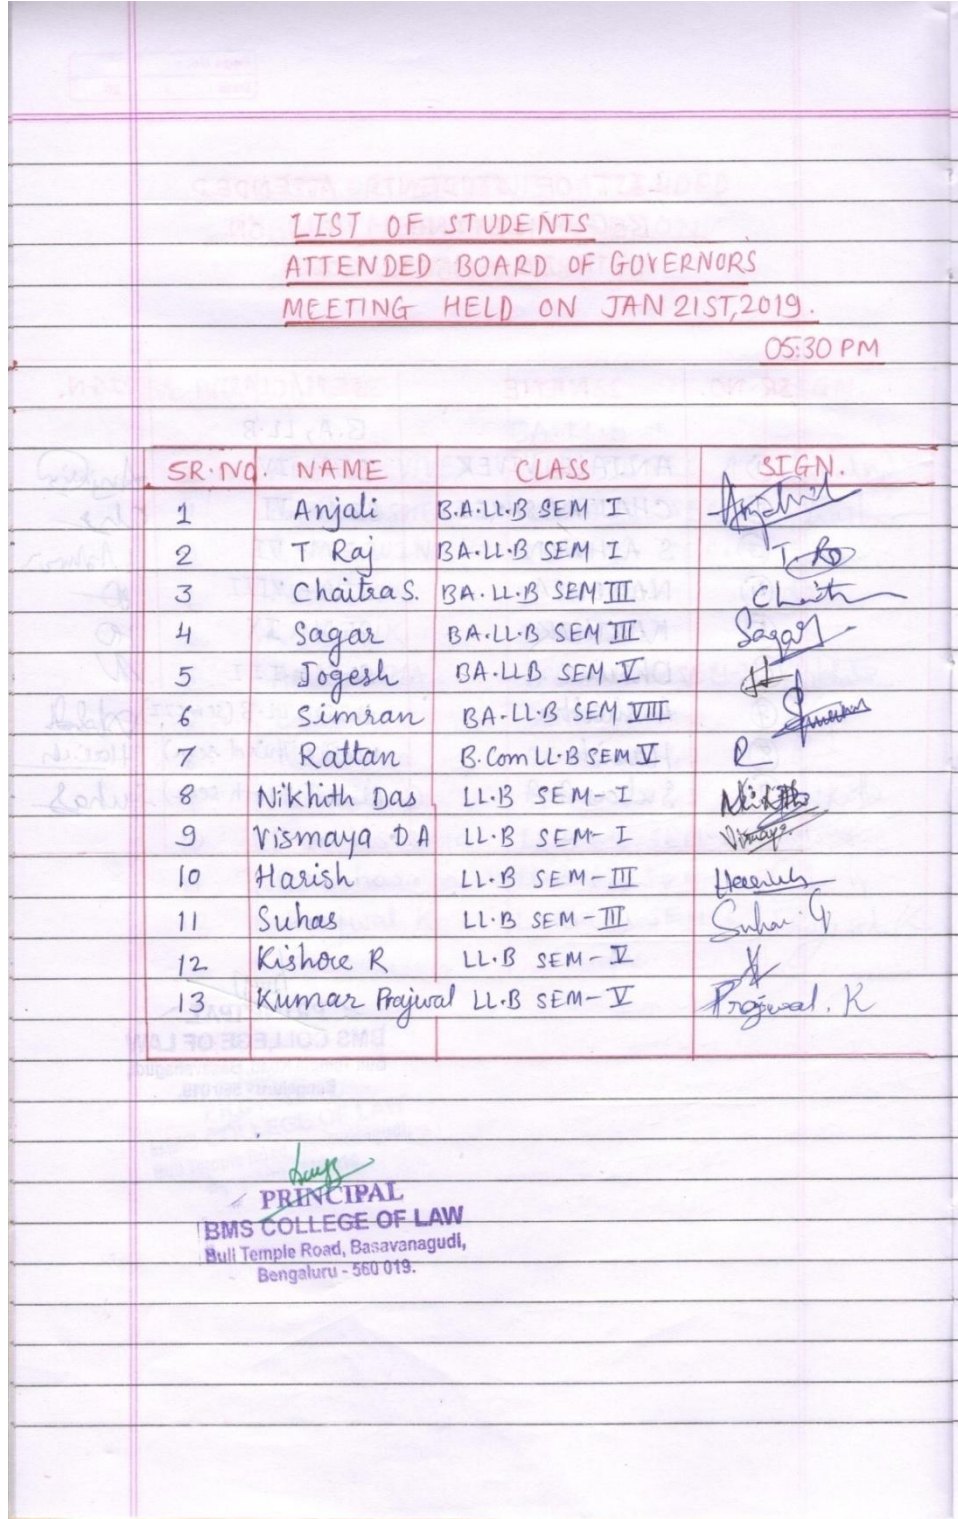 LIST OF STUDENTS
ATTENDED BOARD OF GOVERNORS
MEETING HELD ON JAN 21ST, 2019.
05:30 PM
SR.NO NAME CLASS SIGN.
1 Anjali B.A.LL.B SEM I
2 T Raj BA.LL.B SEM I T
3 Chaitra S. BA.LL.B SEM III
4 Sagar BA.LL.B SEM III Sagar
5 Jogesh BA.LL.B SEM V
6 Simran BA.LL.B SEM VIII
7 Rattan B.Com LL.B SEM V R
8 Nikhith Das LL.B SEM-I
9 Vismaya D A LL.B SEM-I
10 Harish LL.B SEM-III
11 Suhas LL.B SEM-III
12 Kishore R LL.B SEM-V
13 Kumar Prajwal LL.B SEM-V Prajwal. K
PRINCIPAL
BMS COLLEGE OF LAW
Bull Temple Road, Basavanagudi,
Bengaluru - 560 019.